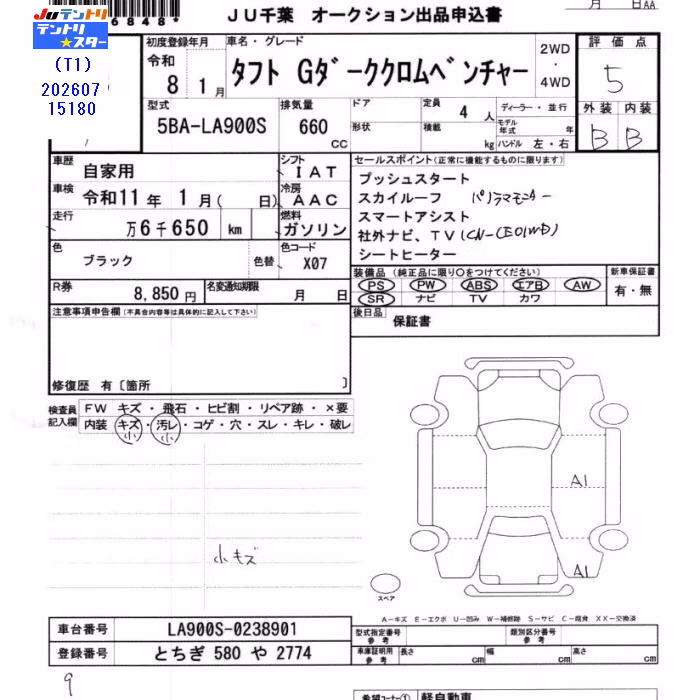 6848*
JU千葉 オークション出品申込書
月 日AA
JUテントリ
テントリ★スター
(T1)
202607
15180
初度登録年月
令和
8 1月
車名・グレード
タフト Gダークククロムベンチャー
2WD
・
4WD
評価点
5
外装 内装
B B
型式
5BA-LA900S
排気量
660
CC
ドア
形状
定員
4 人
積載
kg
ディーラー・並行
モデル年式 年
ハンドル 左・右
車歴
自家用
シフト
IAT
車検
令和11年 1月( 日)
冷房
AAC
走行
万6千650 km
燃料
ガソリン
色
ブラック
色替
色コード
X07
R券
8,850円
名変通知期限
月 日
セールスポイント(正常に機能するものに限ります)
プッシュスタート
スカイルーフ パノラマモニター
スマートアシスト
社外ナビ、TV(CN-CE01WD)
シートヒーター
装備品(純正品に限り○をつけてください)
PS PW ABS エアB AW
SR ナビ TV カワ
新車保証書
有・無
後日品
保証書
注意事項申告欄(不具合内容等は具体的に記入して下さい)
修復歴 有〔箇所 〕
検査員記入欄
FW キズ・飛石・ヒビ割・リペア跡・×要
内装 キズ・汚レ・コゲ・穴・スレ・キレ・破レ
小 小
小キズ
A1
A1
スペア
A-キズ E-エクボ U-凹み W-補修跡 S-サビ C-腐食 XX-交換済
車台番号
LA900S-0238901
登録番号
とちぎ 580 や 2774
型式指定番号
参考
類別区分番号
参考
車庫証明用
参考
長さ cm
幅 cm
高さ cm
9
希望コーナー①
軽自動車